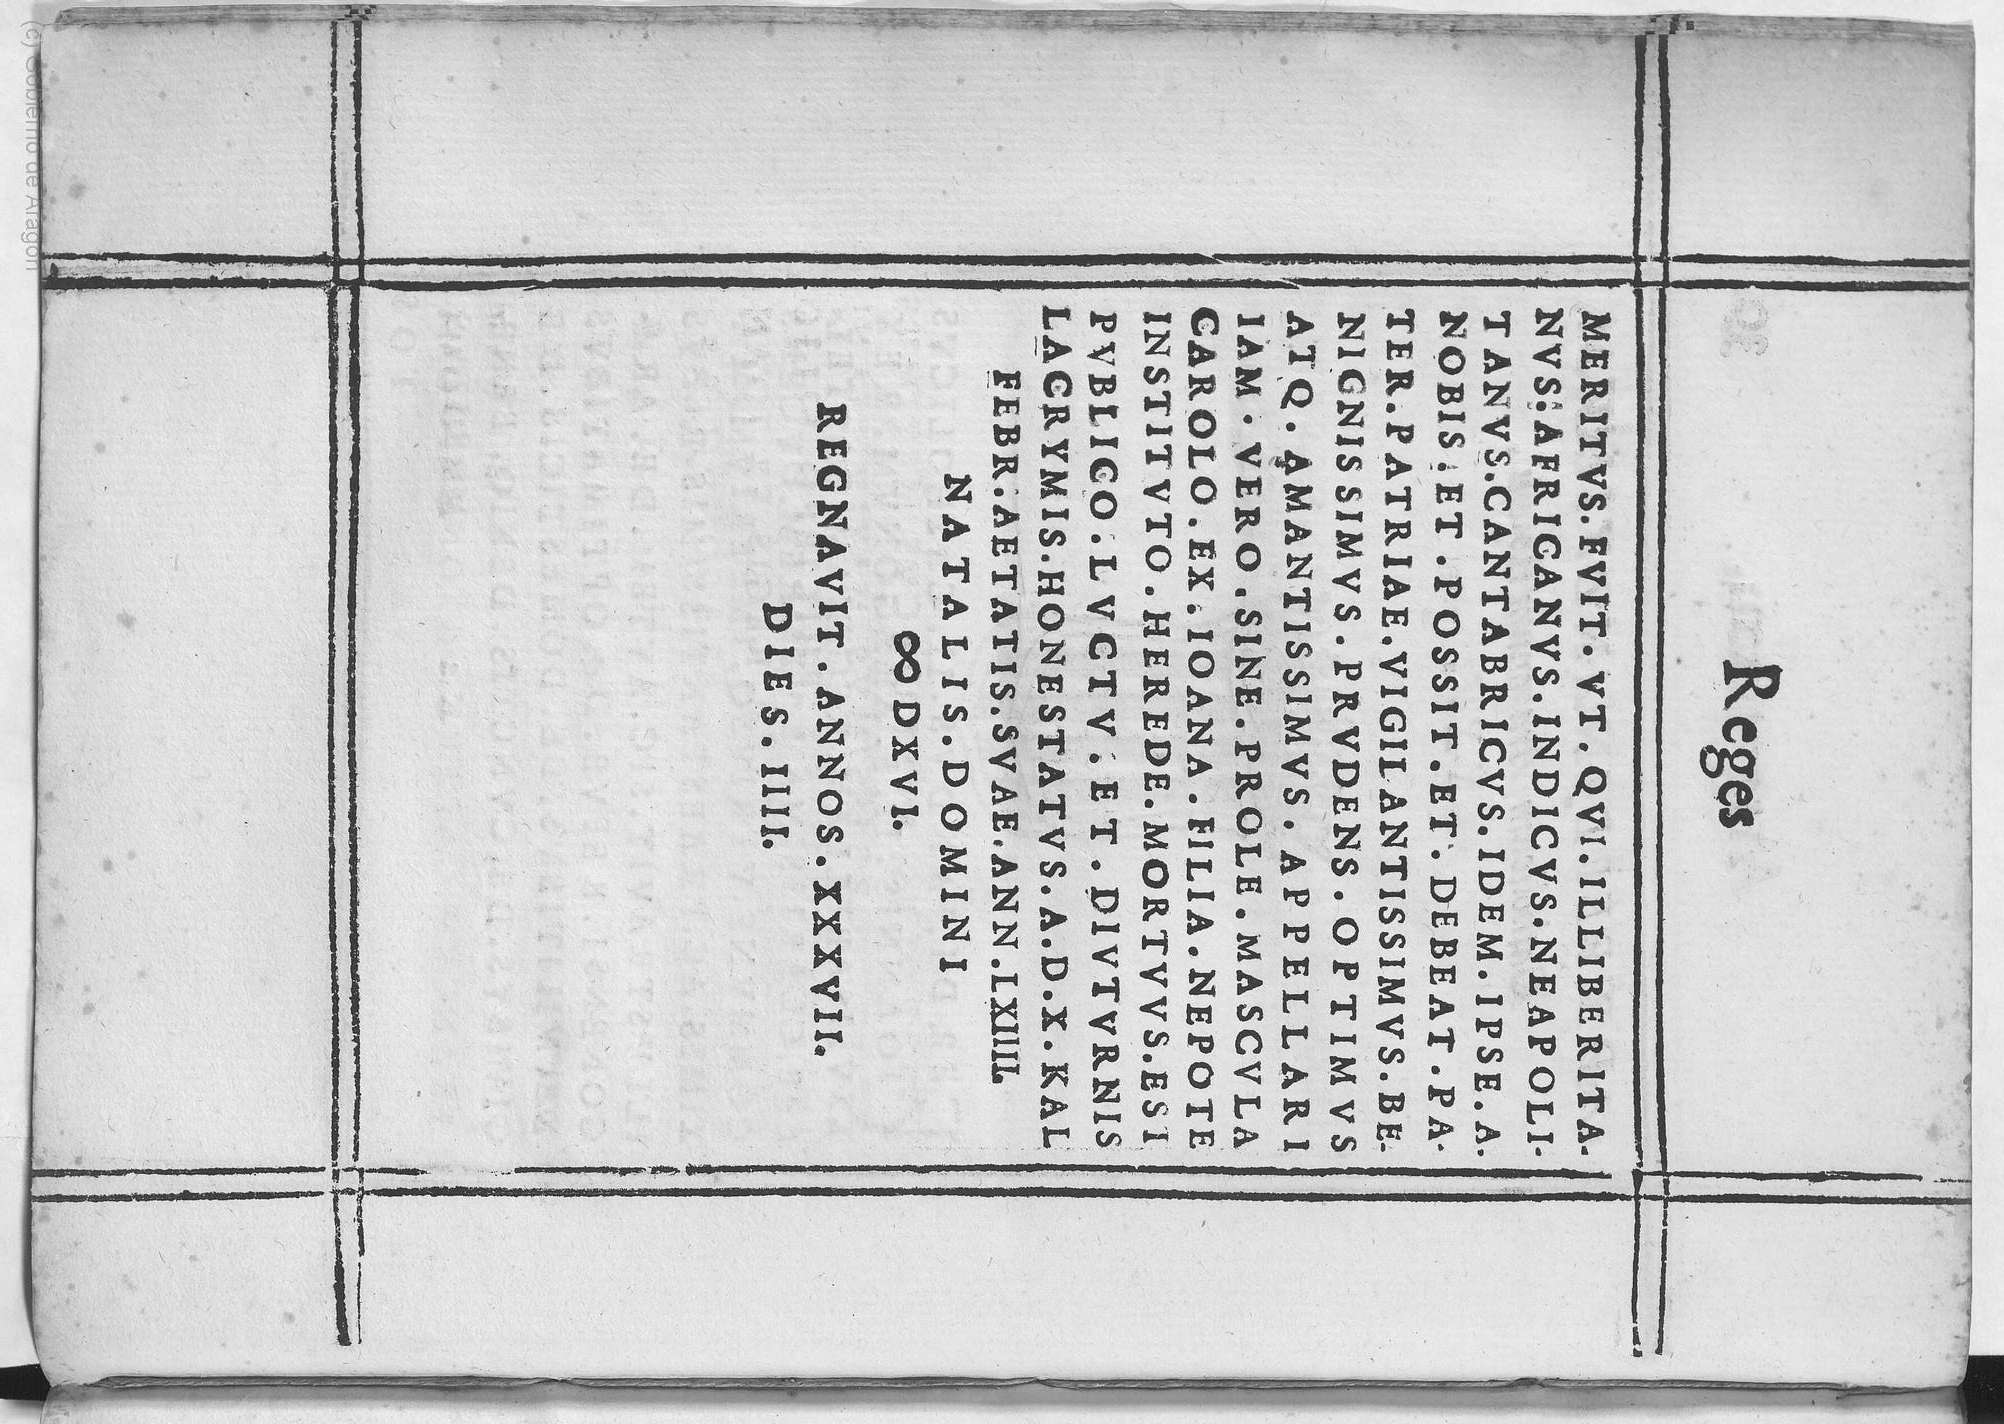 Reges
MERITVS.FVIT.VT.QVI.ILLIBERITA-
NVS.AFRICANVS.INDICVS.NEAPOLI-
TANVS.CANTABRICVS.IDEM.IPSE.A.
NOBIS.ET.POSSIT.ET.DEBEAT.PA-
TER.PATRIAE.VIGILANTISSIMVS.BE-
NIGNISSIMVS.PRVDENS.OPTIMVS
ATQ.AMANTISSIMVS.APPELLARI
IAM.VERO.SINE.PROLE.MASCVLA
CAROLO.EX.IOANA.FILIA.NEPOTE
INSTITVTO.HEREDE.MORTVVS.ESI
PVBLICO.LVCTV.ET.DIVTVRNIS
LACRYMIS.HONESTATVS.A.D.X.KAL
FEBR.AETATIS.SVAE.ANN.LXIIII.
NATALIS.DOMINI
∞DXVI.
REGNAVIT.ANNOS.XXXVII.
DIES.IIII.
(c) Gobierno de Aragón